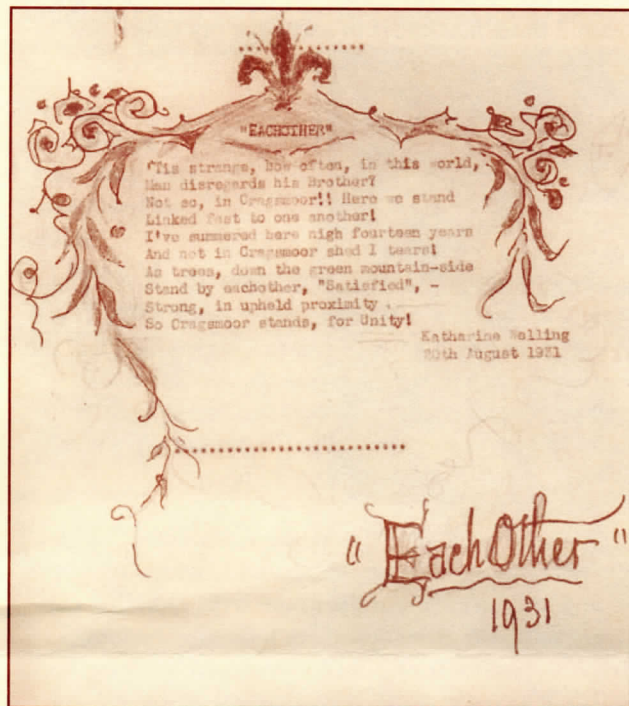 "EACHOTHER"
'Tis strange, how often, in this world,
Man disregards his Brother?
Not so, in Cragsmoor!! Here we stand
Linked fast to one another!
I've summered here nigh fourteen years
And not in Cragsmoor shed I tears!
As trees, down the green mountain-side
Stand by eachother, "Satisfied", -
Strong, in upheld proximity.
So Cragsmoor stands, for Unity!
Katharine
20th August 1931
"EachOther"
1931